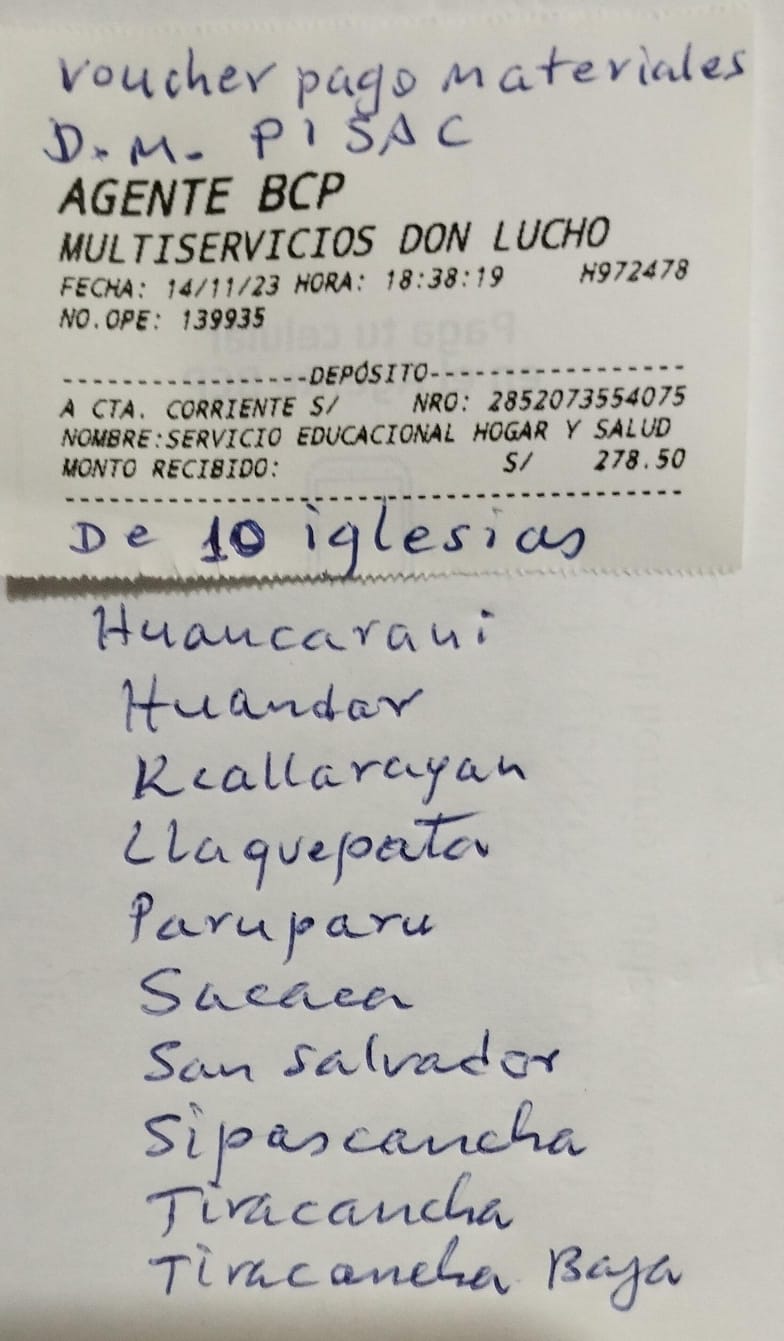 Voucher pago materiales
D.M. PISAC
AGENTE BCP
MULTISERVICIOS DON LUCHO
FECHA: 14/11/23 HORA: 18:38:19 H972478
NO.OPE: 139935
-----------------DEPÓSITO-----------------
A CTA. CORRIENTE S/ NRO: 2852073554075
NOMBRE:SERVICIO EDUCACIONAL HOGAR Y SALUD
MONTO RECIBIDO: S/ 278.50
De 10 iglesias
Huancarani
Huandar
Kcallarayan
Llaquepata
Paruparu
Sacaca
San Salvador
Sipascancha
Tiracancha
Tiracancha Baja